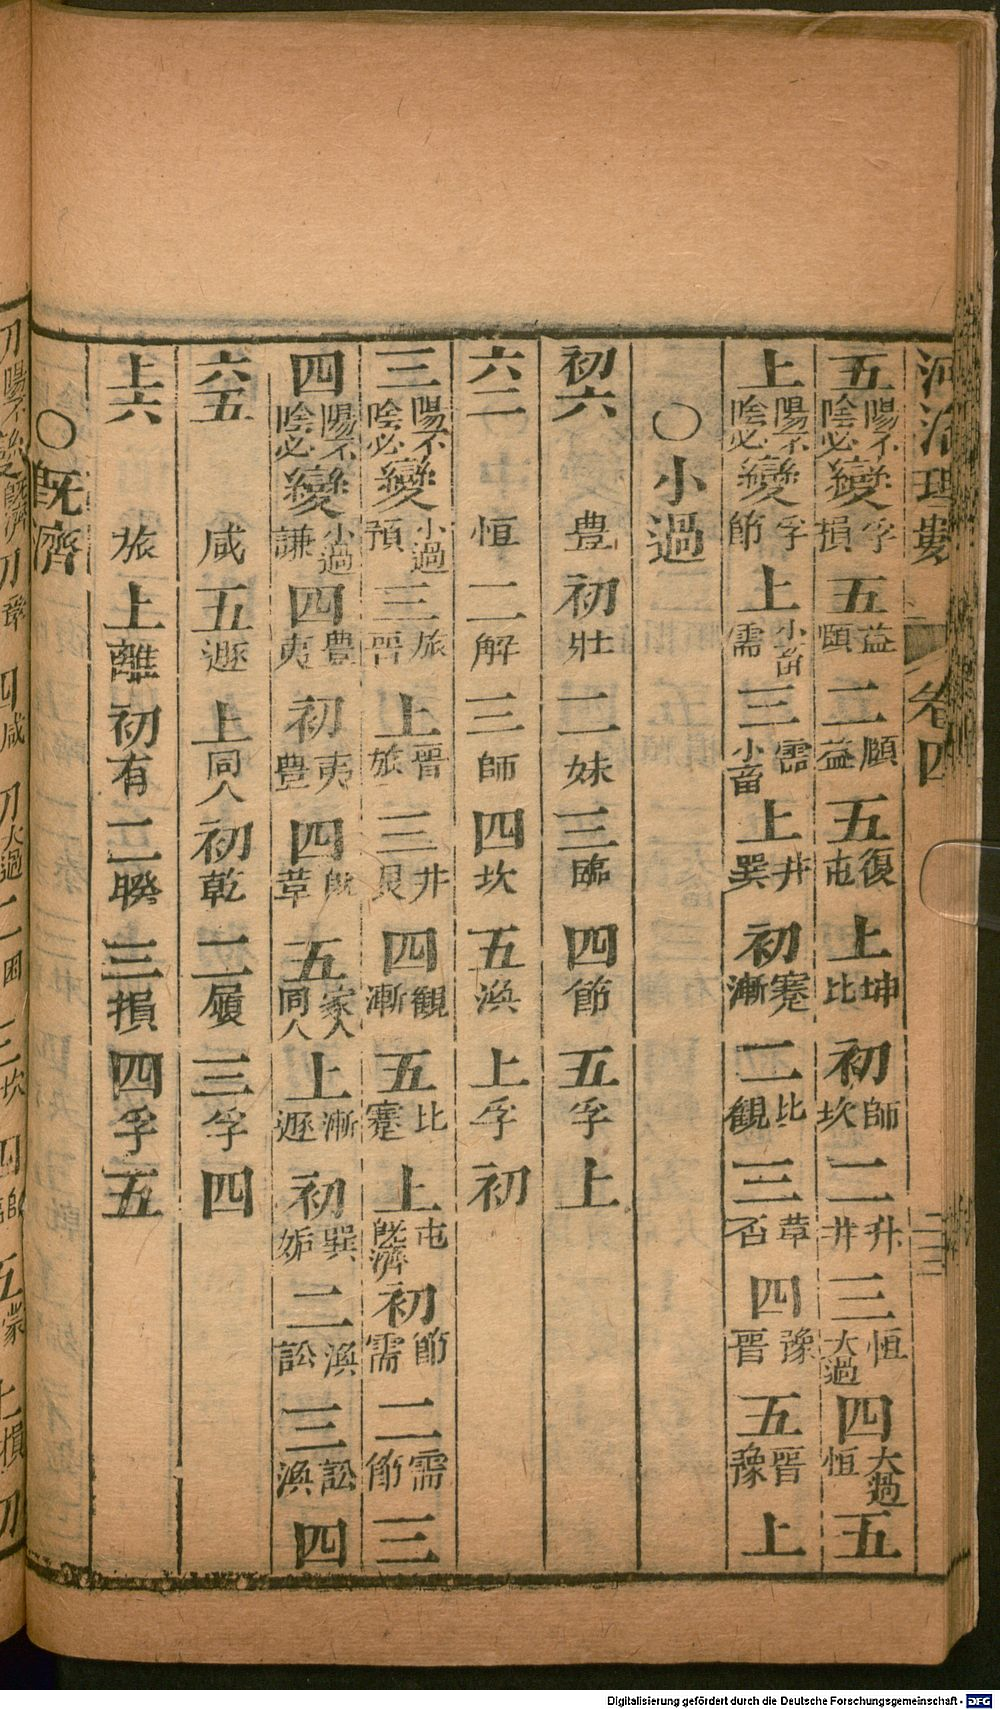 河洛理數 卷四 二三
五陽不陰必變孚損五益頤二頤益五復屯上坤比初師坎二升井三恒大過四大過恒五
上陽不陰必變孚節上小畜需三需小畜上井巽初蹇漸二比觀三萃否四豫晋五晋豫上
○小過
初六豊初壯二妹三臨四節五孚上
六二恒二解三師四坎五渙上孚初
三陽不陰必變小過預三旅晋上晋旅三井艮四觀漸五比蹇上屯旣濟初節需二需節三
四陽不陰必變小過謙四豊夷初夷豊四旣革五家人同人上漸遯初巽姤二渙訟三訟渙四
六五咸五遯上同人初乾二履三孚四
上六旅上離初有二睽三損四孚五
○旣濟
Digitalisierung gefördert durch die Deutsche Forschungsgemeinschaft - DFG